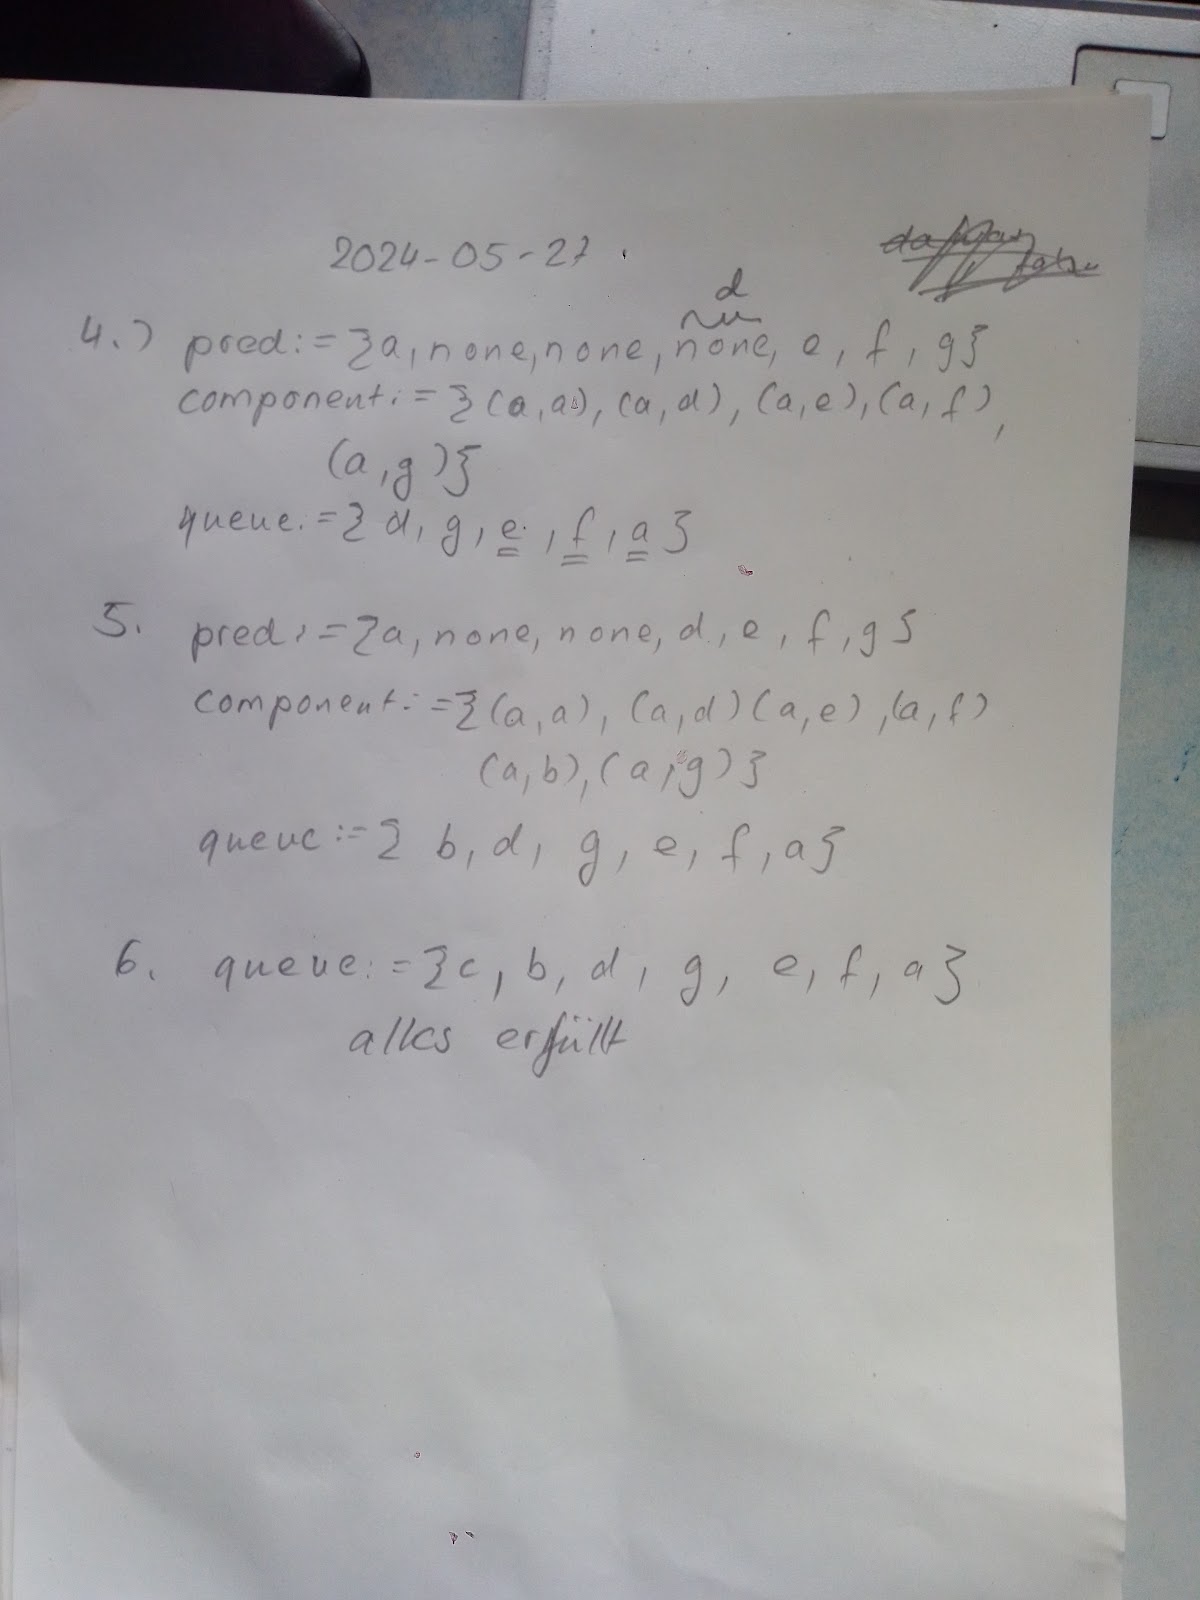 2024-05-27
d
4.) pred:={a, none, none, none, e, f, g}
component:={(a,a), (a,d), (a,e), (a,f),
(a,g)}
queue:={d, g, e, f, a}
5. pred:={a, none, none, d, e, f, g}
component:={(a,a), (a,d) (a,e), (a,f)
(a,b), (a,g)}
queue:={ b, d, g, e, f, a}
6. queue:={c, b, d, g, e, f, a}
alles erfüllt